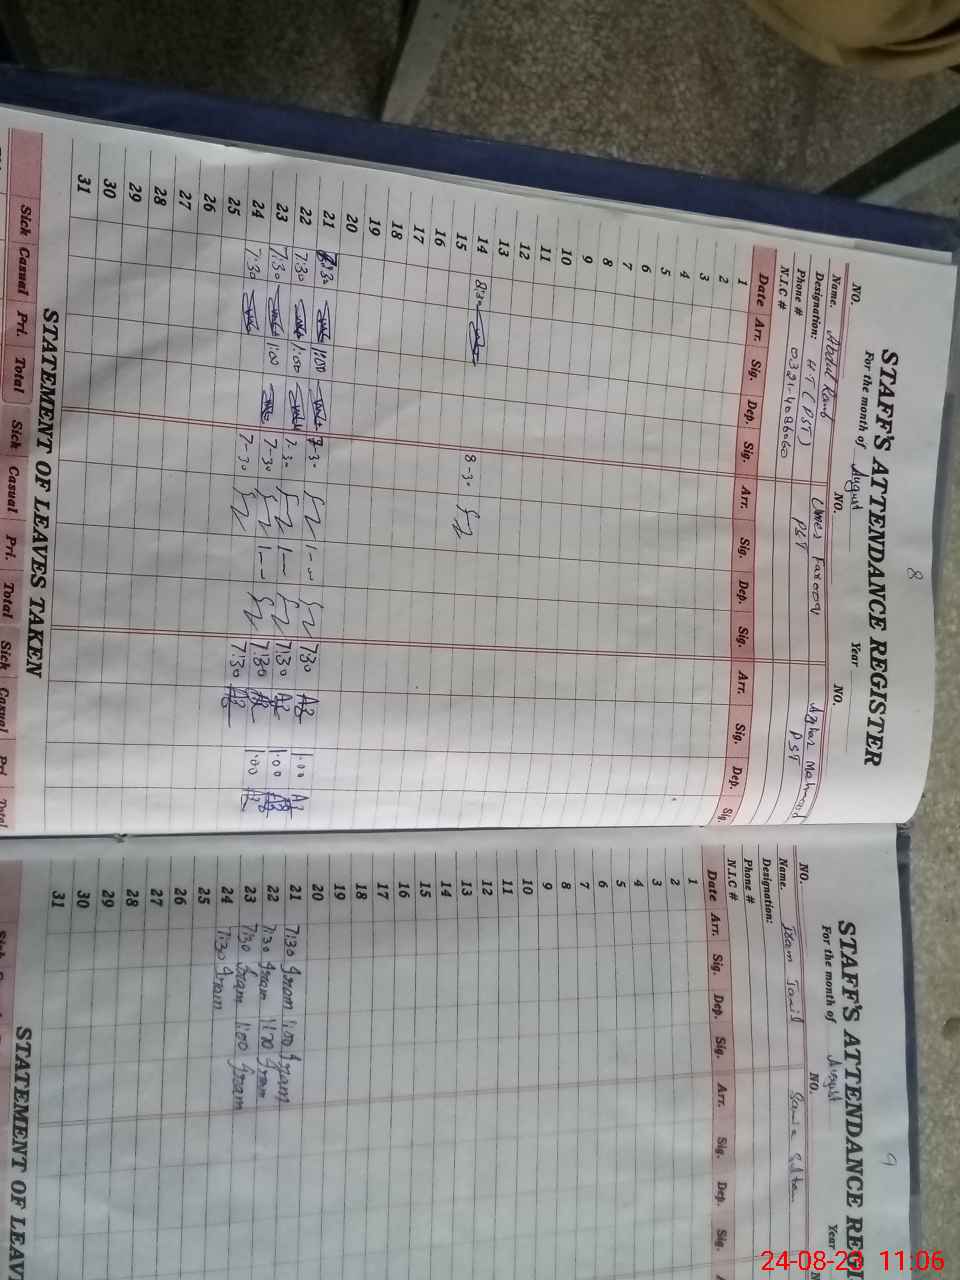 8
STAFF'S ATTENDANCE REGISTER
For the month of August Year
NO. NO. NO.
Name. Abdul Rauf Umer Farooq Azhar Mehmood
Designation: H.T (PST) PST PST
Phone # 0321-4086060
N.I.C #
Date Arr. Sig. Dep. Sig. Arr. Sig. Dep. Sig. Arr. Sig. Dep. Sig.
1
2
3
4
5
6
7
8
9
10
11
12
13
14 8:30 8-30
15
16
17
18
19
20
21 1:00 7-30 1-00 7:30 AB 1:00 AB
22 7:30 1:00 7-30 1-00 7:30 AB 1:00 AB
23 7:30 1:00 7-30 1-00 7:30 AB 1:00 AB
24 7:30 7-30 7:30 AB
25
26
27
28
29
30
31
STATEMENT OF LEAVES TAKEN
Sick Casual Pri. Total Sick Casual Pri. Total Sick Casual Pri Total
9
STAFF'S ATTENDANCE REGI
For the month of August Year
NO. NO.
Name. Iram
Designation:
Phone #
N.I.C #
Date Arr. Sig. Dep. Sig. Arr. Sig. Dep. Sig.
1
2
3
4
5
6
7
8
9
10
11
12
13
14
15
16
17
18
19
20
21 7:30 Iram 1:00 Iram
22 7:30 Iram 1:00 Iram
23 7:30 Iram 1:00 Iram
24 7:30 Iram
25
26
27
28
29
30
31
STATEMENT OF LEAV
24-08-23 11:06